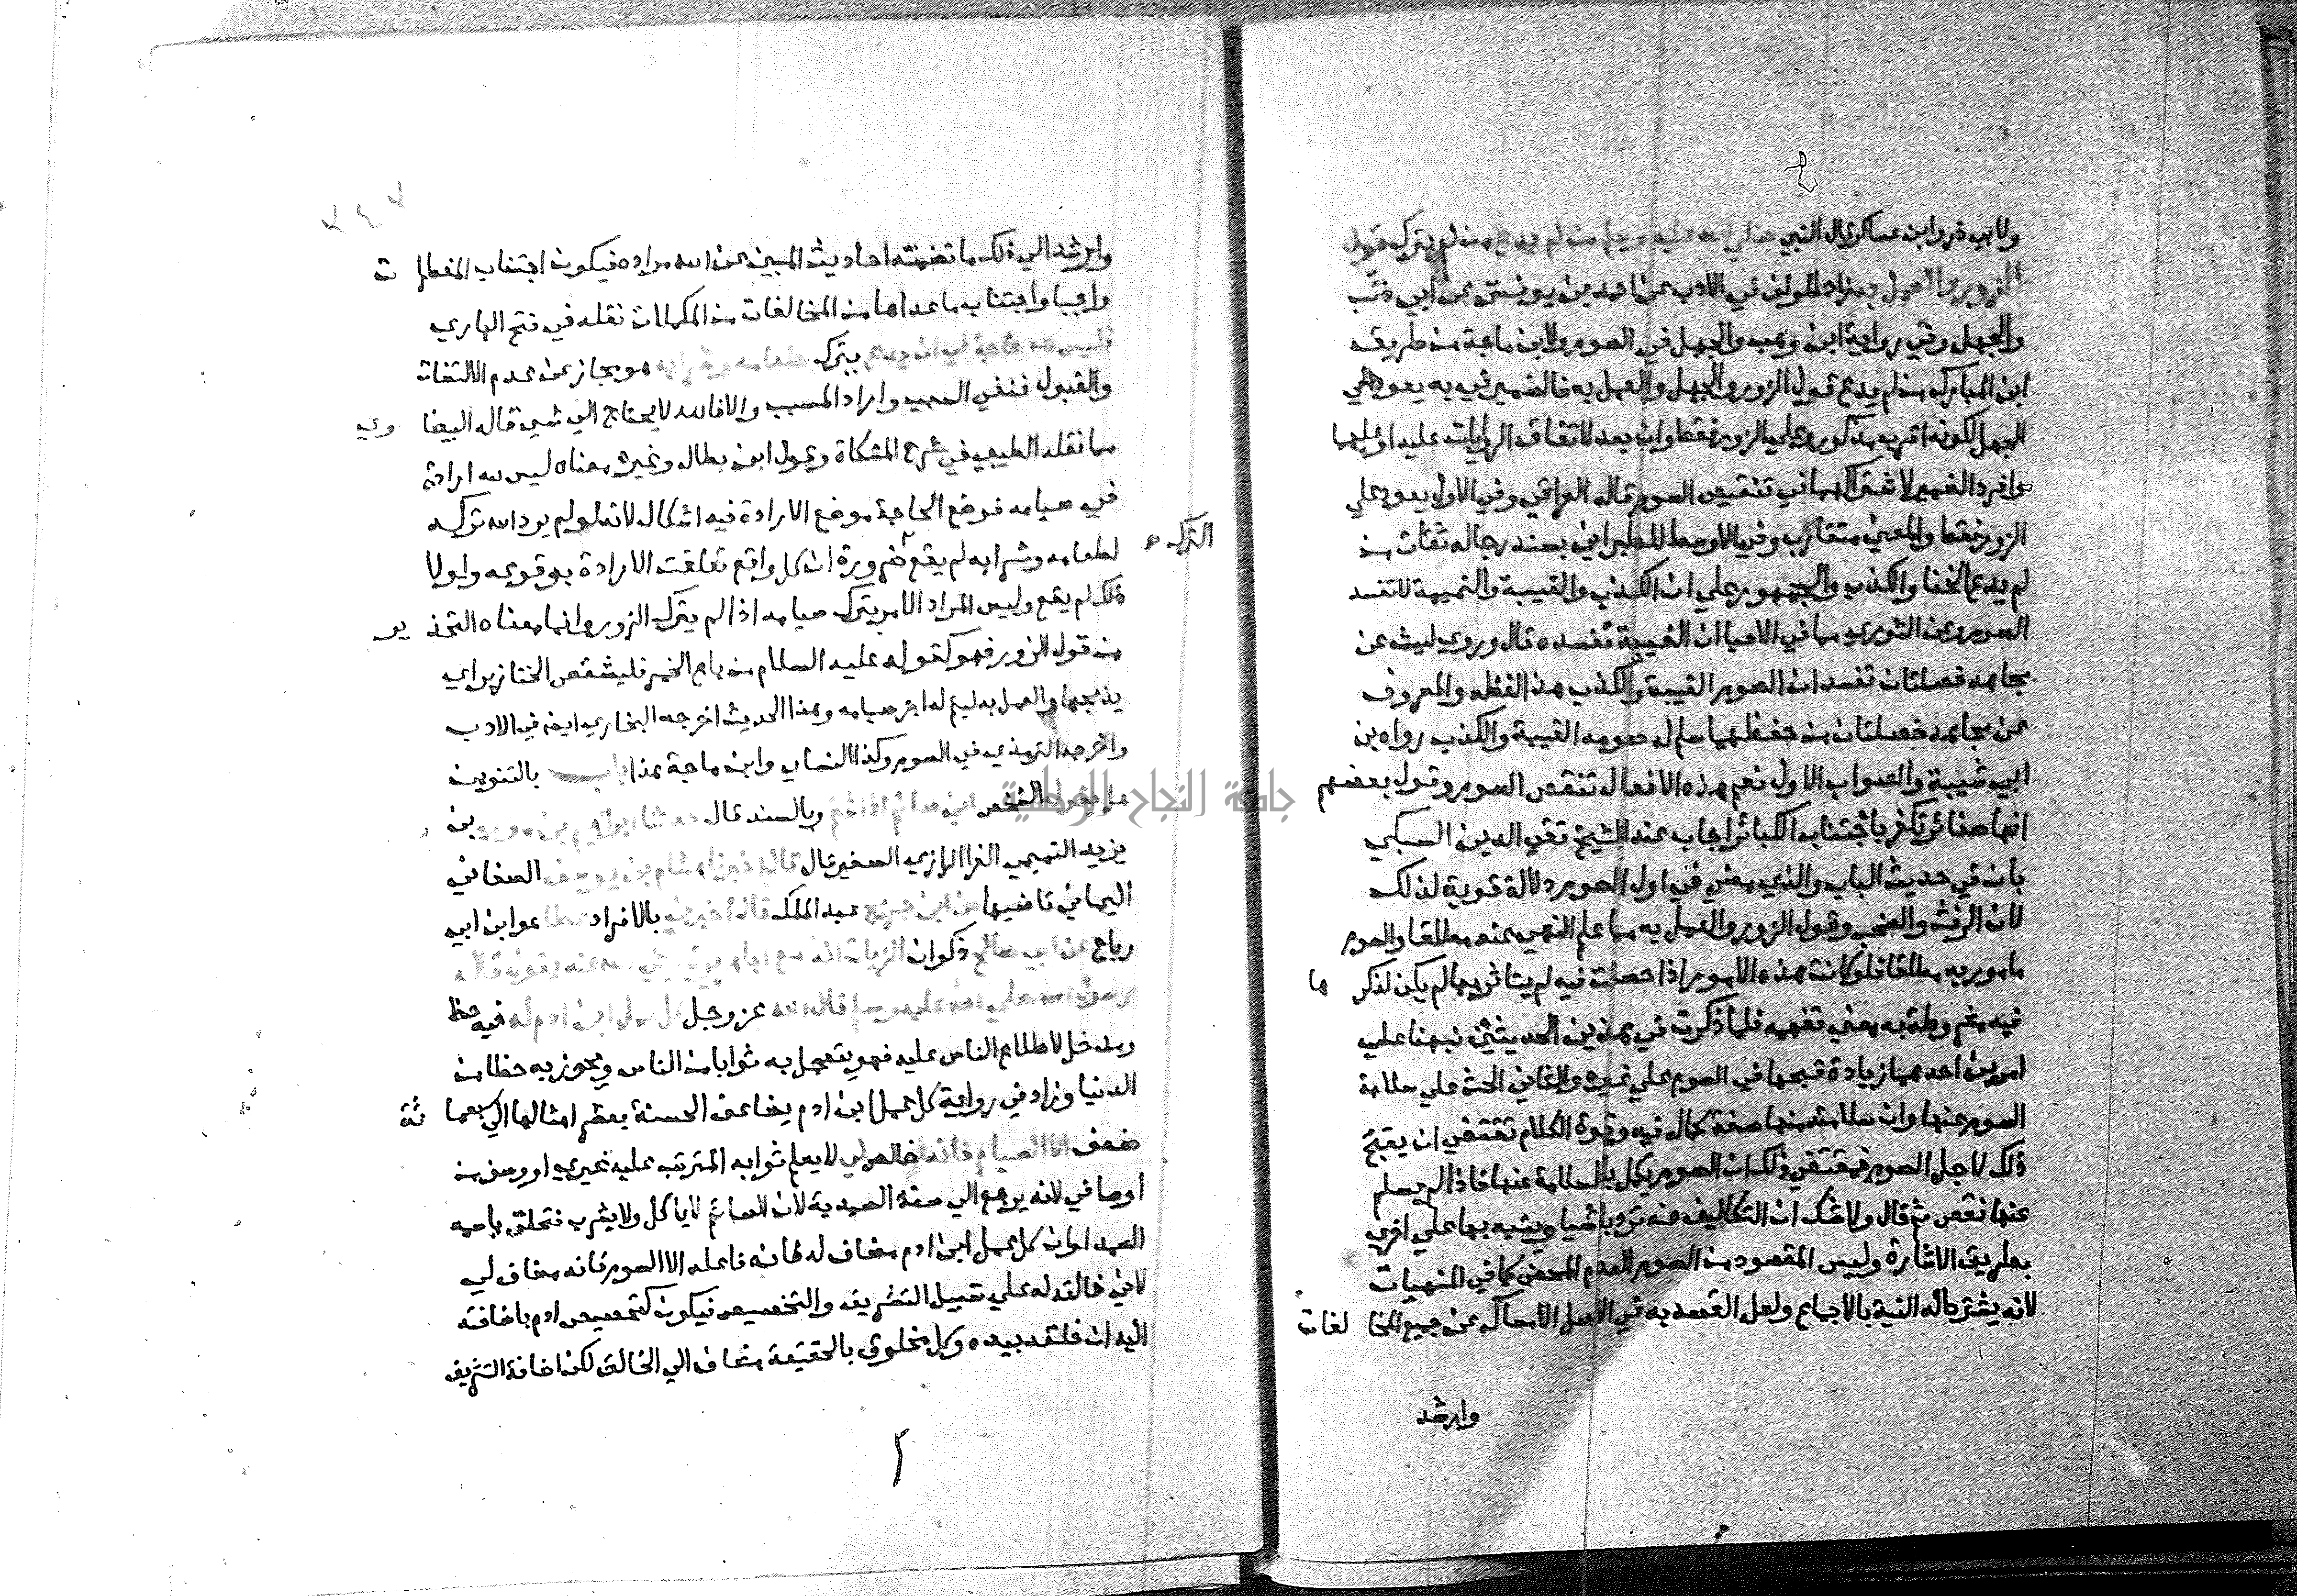 ولابي ذر وابن عساكر قال النبي صلى الله عليه وسلم من لم يدع من لم يترك قول
الزور والعمل به زاد المولف في الادب عن احمد بن يونس عن ابي ذئب
والجهل وفي رواية ابن وهب والجهل في الصوم ولابن ماجة من طريق
ابن المبارك من لم يدع قول الزور والجهل والعمل به فالضمير في به يعود الي
الجهل لكونه اقرب مذكور وعلي الزور فقط وان بعد لاتفاق الروايات عليه او عليهما
وافرد الضمير لاشتراكهما في تنقيص الصوم قاله العراقي وفي الاول يعود علي
الزور فقط والمعني متقارب وفي الاوسط للطبراني بسند رجاله ثقات من
لم يدع الخنا والكذب والجمهور علي ان الكذب والغيبة والنميمة لا تفسد
الصوم وعن الثوري مما في الاحيا ان الغيبة تفسده قال وروي ليث عن
مجاهد خصلتان تفسدان الصوم الغيبة والكذب هذا لفظه والمعروف
عن مجاهد خصلتان من حفظهما سلم له صومه الغيبة والكذب رواه بن
ابي شيبة والصواب الاول نعم هذه الافعال تنقص الصوم وقول بعضهم
انها صغائر تكفر باجتناب الكبائر اجاب عنه الشيخ تقي الدين السبكي
بان في حديث الباب والذي مضي في اول الصوم دلالة قوية لذلك
لان الرفث والصخب وقول الزور والعمل به مما علم النهي عنه مطلقا والصوم
مامور به مطلقا فلو كانت هذه الامور اذا حصلت فيه لم يتاثر بها لم يكن لذكرها
فيه مشروطة به معني تفهمه فلما ذكرت في هذين الحديثين نبهنا علي
امرين احدهما زيادة قبحها في الصوم علي غيره والثاني الحث علي سلامة
الصوم عنها وان سلامته منها صفة كمال فيه وقوة الكلام تقتضي ان يقبح
ذلك لاجل الصوم فمقتضي ذلك ان الصوم يكمل بالسلامة عنها فاذا لم يسلم
عنها نقص ثم قال ولا شك ان التكاليف قد ترد باشيا وينبه بها علي اخري
بطريق الاشارة وليس المقصود من الصوم العدم المحض كما في المنهيات
لانه يشترط له النية بالاجماع ولعل القصد به في الاصل الامساك عن جميع المخالفات
وارشد
٣٤٣
وارشد الي ذلك ما تضمنته احاديث المبين عن الله مراده فيكون اجتناب المفطرات
واجبا واجتناب ما عداها من المخالفات من المكملات نقله في فتح الباري
فليس لله حاجة في ان يدع يترك طعامه وشرابه هو مجاز عن عدم الالتفات
والقبول فنفي السبب واراد المسبب والا فالله لا يحتاج الي شي قاله البيضاوي
مما نقله الطيبي في شرح المشكاة وقول ابن بطال وغيره معناه ليس لله ارادة
في صيامه فوضع الحاجة موضع الارادة فيه اشكال لانه لو لم يرد الله تركه
لطعامه وشرابه لم يقع ضرورة ان كل واقع تعلقت الارادة بوقوعه ولولا
الترك
ذلك لم يقع وليس المراد الامر بترك صيامه اذا لم يترك الزور وانما معناه التحذير
من قول الزور فهو كقوله عليه السلام من باع الخمر فليشقص الخنازير اي
يذبحها والعمل به ليتم له اجر صيامه وهذا الحديث اخرجه البخاري ايضا في الادب
واخرجه الترمذي في الصوم وكذا النسائي وابن ماجة هذا باب بالتنوين
هل يقول الشخص اني صائم اذا شتم وبالسند قال حدثنا ابراهيم بن موسي بن
يزيد التميمي الفرا الرازي الصغير قال قال اخبرنا هشام بن يوسف الصنعاني
اليماني قاضيها عن ابن جريج عبد الملك قال اخبرني بالافراد عطا هو ابن ابي
رباح عن ابي صالح ذكوان الزيات انه سمع ابا هريرة رضي الله عنه يقول قال
رسول الله صلي الله عليه وسلم قال الله عز وجل كل عمل ابن ادم له فيه حظ
ومدخل لاطلاع الناس عليه فهو يتعجل به ثوابا من الناس ويحوز به حظا من
الدنيا وزاد في رواية كل عمل ابن ادم يضاعف الحسنة بعشر امثالها الي سبعمائة
ضعف الا الصيام فانه خالص لي لا يعلم ثوابه المترتب عليه غيري او وصف من
اوصافي لانه يرجع الي صفة الصمدية لان الصائم لا ياكل ولا يشرب فتخلق باسمه
الصمد او ان كل عمل ابن ادم مضاف له لانه فاعله الا الصوم فانه مضاف لي
لاني خالقه له علي سبيل التشريف والتخصيص فيكون كتخصيص ادم باضافته
اليه ان خلقه بيده وكل مخلوق بالحقيقة مضاف الي الخالق لكن اضافة التشريف
جامعة النجاح الوطنية